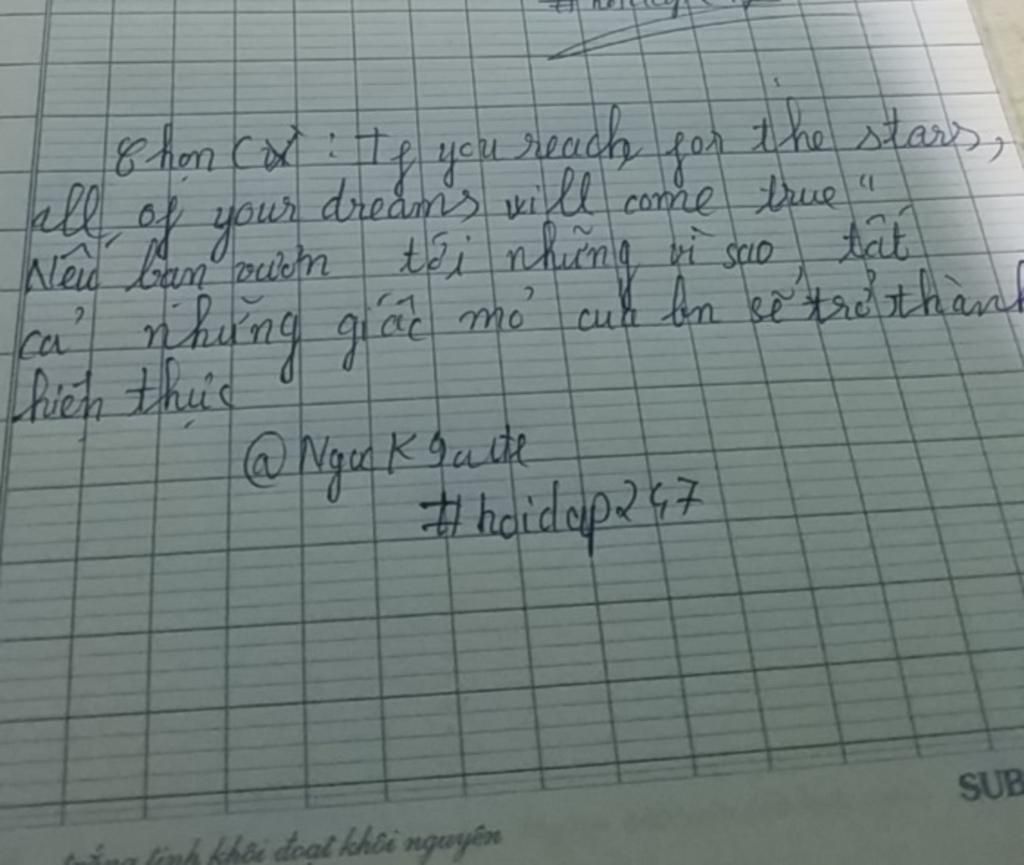 Chọn câu : If you reach for the stars,
all of your dreams will come true "
Nếu bạn vươn tới những vì sao, tất
cả những giấc mơ của bn sẽ trở thành
hiện thực
@Ngọc
#hoidap247
SUB
trắng tinh khôi đoạt khôi nguyên